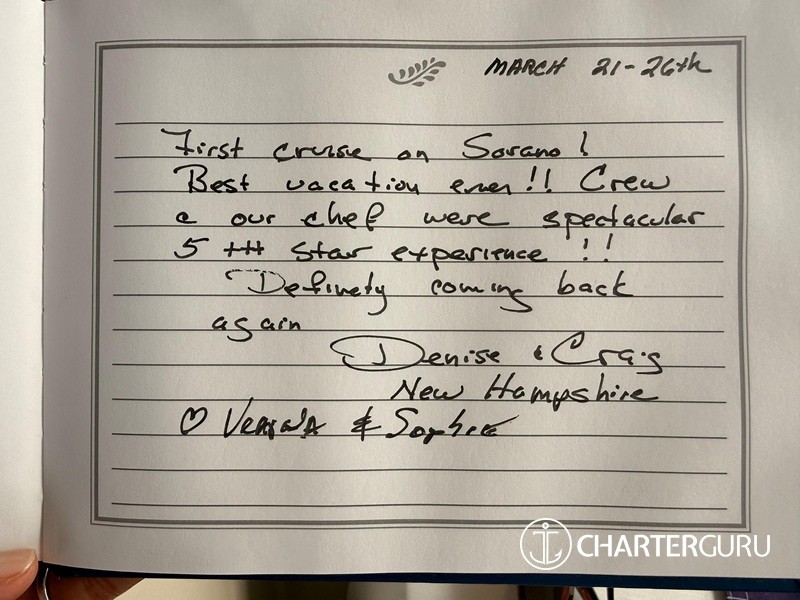 MARCH 21-26th
First cruise on Sorano!
Best vacation ever!! Crew
& our chef were spectacular
5 +++ star experience !!
Definety coming back
again
Denise & Craig
New Hampshire
♡ & Sophie
CHARTERGURU